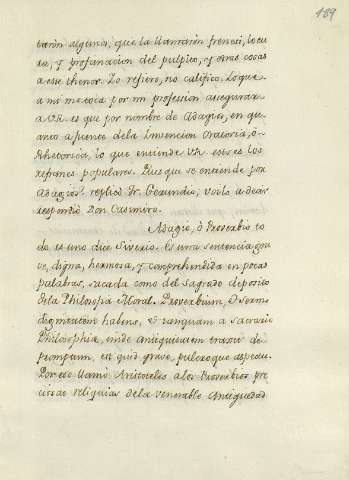 489
tarán alguno, que la llamarán frenesi, locu
ra, y profanacion del pulpito, y otras cosas
a ese thenor. Lo refiero, no califico. Lo que
a mi me toca por mi profesion asegurar
a VR. es que por nombre de Adagios, en qu
anto a fuente de la Invencion Oratoria, ó
Rhetorica, lo que entiende VR. esos es los
refranes populares. Pues que se entiende por
Adagios? replicó Fr. Gerundio, voilo a decir
respondió Don Casimiro.
Adagio, ó Proverbio to
do es uno dice Siverio. Es una sentencia gra
ve, digna, hermosa, y comprehendida en pocas
palabras, sacada como del sagrado deposito
de la Philosofia Moral. Proverbium, est sermo
dignitatem habens, et tanquam a Sacrario
Philosophiæ, unde antiquitatem traxit de
promptum, en quid grave, pulcroque aspectu.
Por eso llamó Aristoteles a los Proverbios pre
ciosas reliquias de la venerable Antiguedad